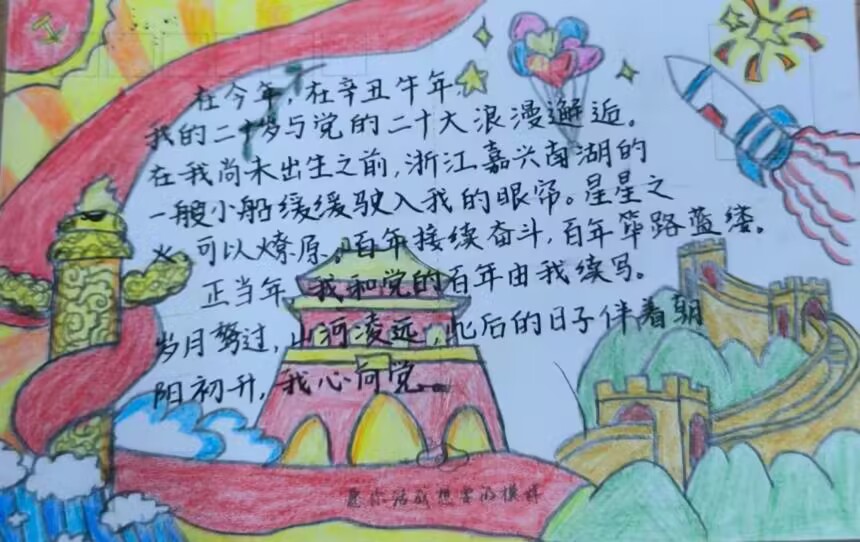 在今年,在辛丑牛年,
我的二十岁与党的二十大浪漫邂逅。
在我尚未出生之前,浙江嘉兴南湖的
一艘小船缓缓驶入我的眼帘。星星之
火,可以燎原。百年接续奋斗,百年筚路蓝缕。
正当年,我和党的百年由我续写。
岁月骛过,山河凌远,此后的日子伴着朝
阳初升,我心向党。
愿你活成想要的模样